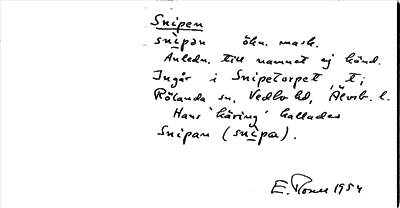 Snipen
snìpən ökn. mask.
Anledn. till namnet ej känd.
Ingår i Snipetorpet, t;
Rölanda sn, Vedbo hd, Älvsb. l.
Hans 'käring' kallades
Snipan (snìpa).
E. 1954